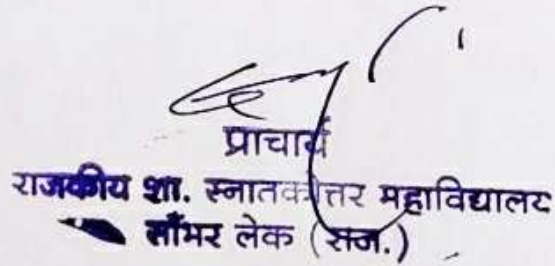 प्राचार्य
राजकीय शा. स्नातकोत्तर महाविद्यालय
साँभर लेक (राज.)